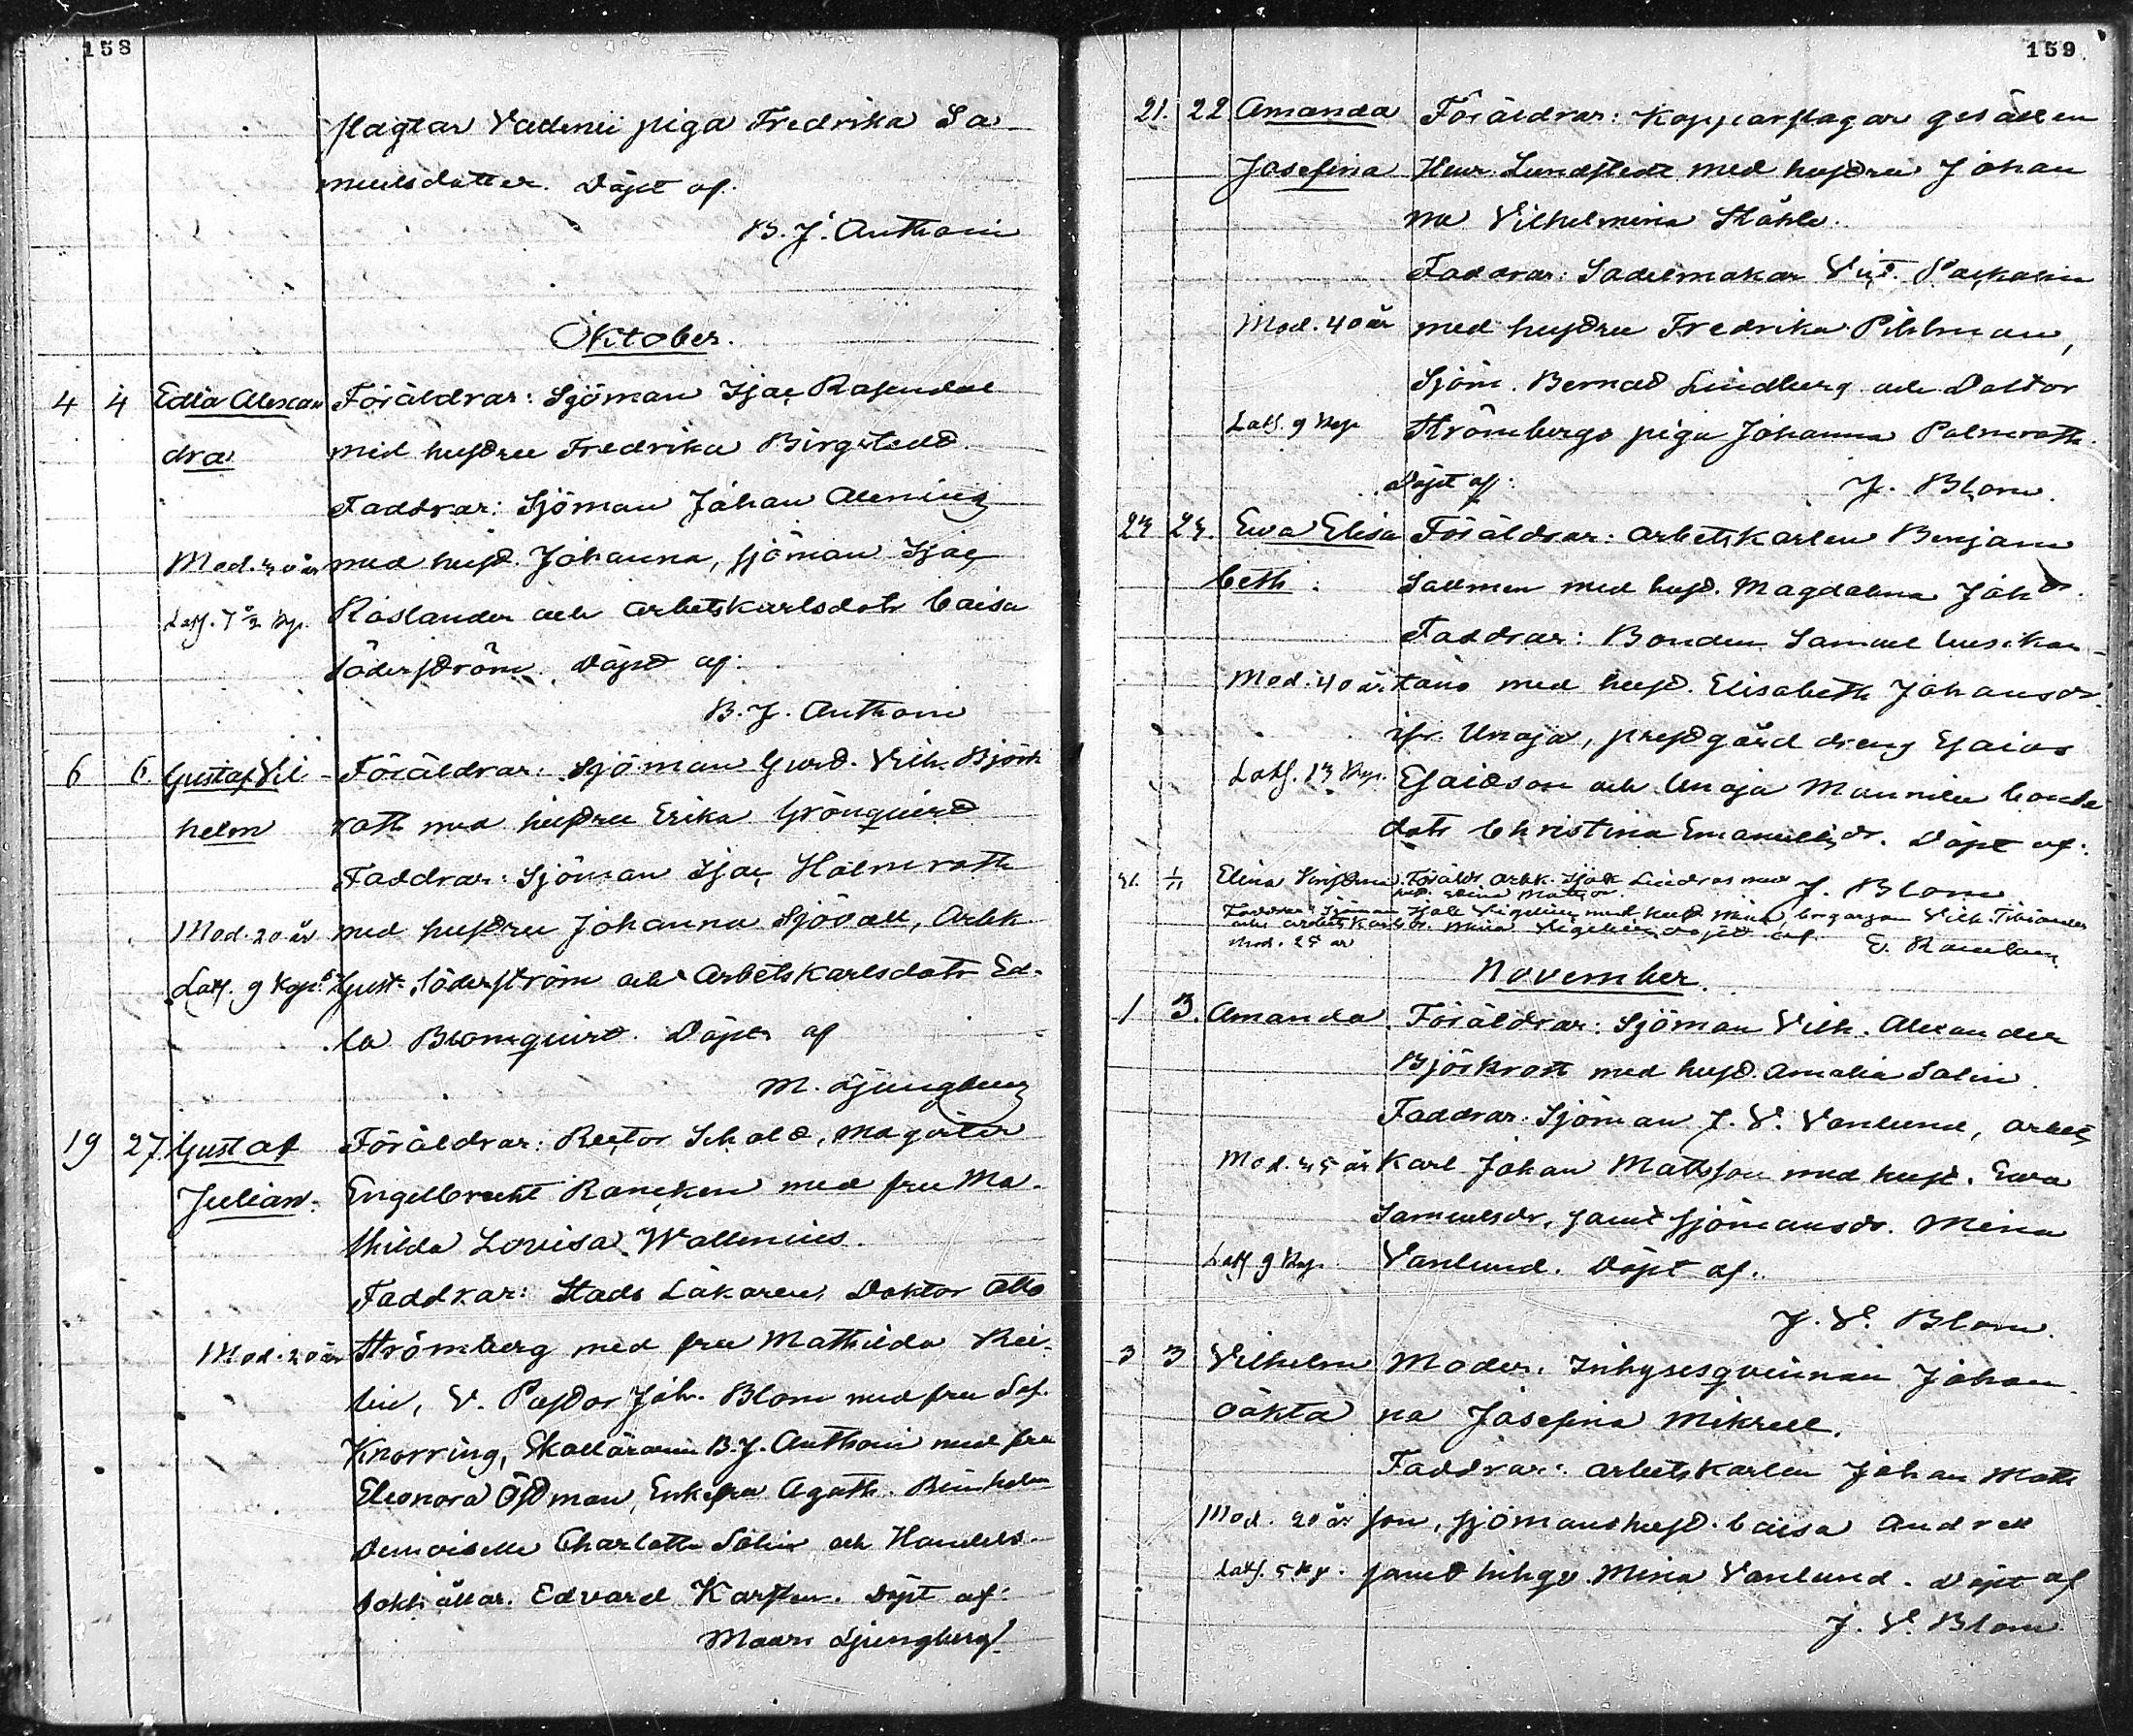 158
slagtar Vadenii piga Fredrika Sa
muelsdotter. Döpt af.
B. J. Anthoni
Oktober.
4 4 Edla Alexan Föräldrar: Sjöman Isac Rosendal
dra med hustru Fredrika Birgstedt.
Faddrar: Sjöman Johan Alenius
Mod. 30 år med hust. Johanna, sjöman Isac
Laks. 7½ kop. Roslander och arbetskarlsdotr Caisa
Söderström. Döpt af:
B. J. Anthoni
6 6. Gustaf Vil- Föräldrar: Sjöman Gust. Vilh. Björk
helm roth med hustru Erika Grönquist
Faddrar: Sjöman Isac Holmroth
Mod. 20 år med hustru Johanna Sjövall, Arbk
Laks. 9 Kop. Gust. Söderström och Arbetskarlsdotr Ed-
la Blomquist. Döpt af
M. Ljungberg
19 27 Gustaf Föräldrar: Rector Schol., Magister
Julian. Engelbrecht Rancken med fru Ma-
thilda Lovisa Wallenius.
Faddrar: Stads Läkaren, Doktor Otto
Mod. 20 år Strömberg med fru Mathilda
V. Pastor Joh. Blom med fru Sof.
Knorring, Skolläraren B. J. Anthoni med fru
Eleonora Östman, Enkefru Agath. Reinholm
demoiselle Charlotta Solin och Handels
bokhållar. Edvard Karsten. Döpt af:
Maur Ljungberg
159.
21. 22 Amanda Föräldrar: Kopparslagar gesällen
Josefina Henr. Lundstedt med hustru Johan
na Vilhelmina Ståhle.
Faddrar: Sadelmakar Vict. Packalin
Mod. 40 år med hustru Fredrika Pihlman,
Sjöm. Bernad Lindberg och Doktor
Laks. 9 kop. Strömbergs piga Johanna Palmroth.
Döpt af: J. Blom.
23 23. Eva Elisa Föräldrar: arbetskarlen Benjam
beth. Sallmen med hust. Magdalena Johdr.
Faddrar: Bonden Samuel Uusikar-
Mod. 40 år. tano med hust. Elisabeth Johansdr.
ifr. Unaja, prestgård dreng Esaias
Laks. 13 kop. Esaidson och Unaja Mannila bonde
dotr Christina Emanuelsdr. Döpt af:
J. Blom
31. 1/11 Elina Föräldr. arbk. Isak Lindros med
hust. Matsdr.
Faddrar: Sjöman Isak med hust. Mina, borgarson Vilh.
och arbetskarlsdr. Mina döpt af.
Mod. 28 år E. Rancken
November.
1 3. Amanda. Föräldrar: Sjöman Vilh. Alexander
Björkroth med hust. Amalia Salin.
Faddrar: Sjöman J. V. Vanlund, arbets
Mod. 35 år karl Johan Mattsson med hust. Eva
Samuelsdr, samt sjömansdr. Mina
Laks 9 kop. Vanlund. Döpt af.
J. V. Blom.
3 3 Vilhelm Moder: Inhysesqvinnan Johan-
oäkta na Josefina Mikrell.
Faddrar: arbetskarlen Johan Matts
Mod. 20 år son, sjömanshust. Caisa Andrell
Laks. 5 kp. samt inhqv. Mina Vanlund. Döpt af
J. V. Blom